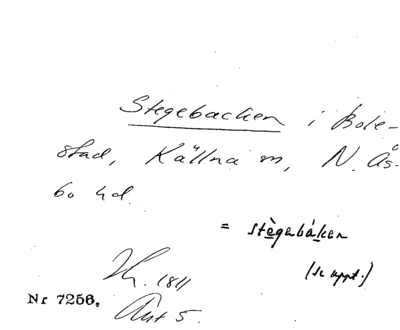 Stegebacken i Bole-
stad, Källna sn, N. Ås-
bo hd.
= stègabákan
(se uppt.)
1811
Akt 5.
Nr 7256.